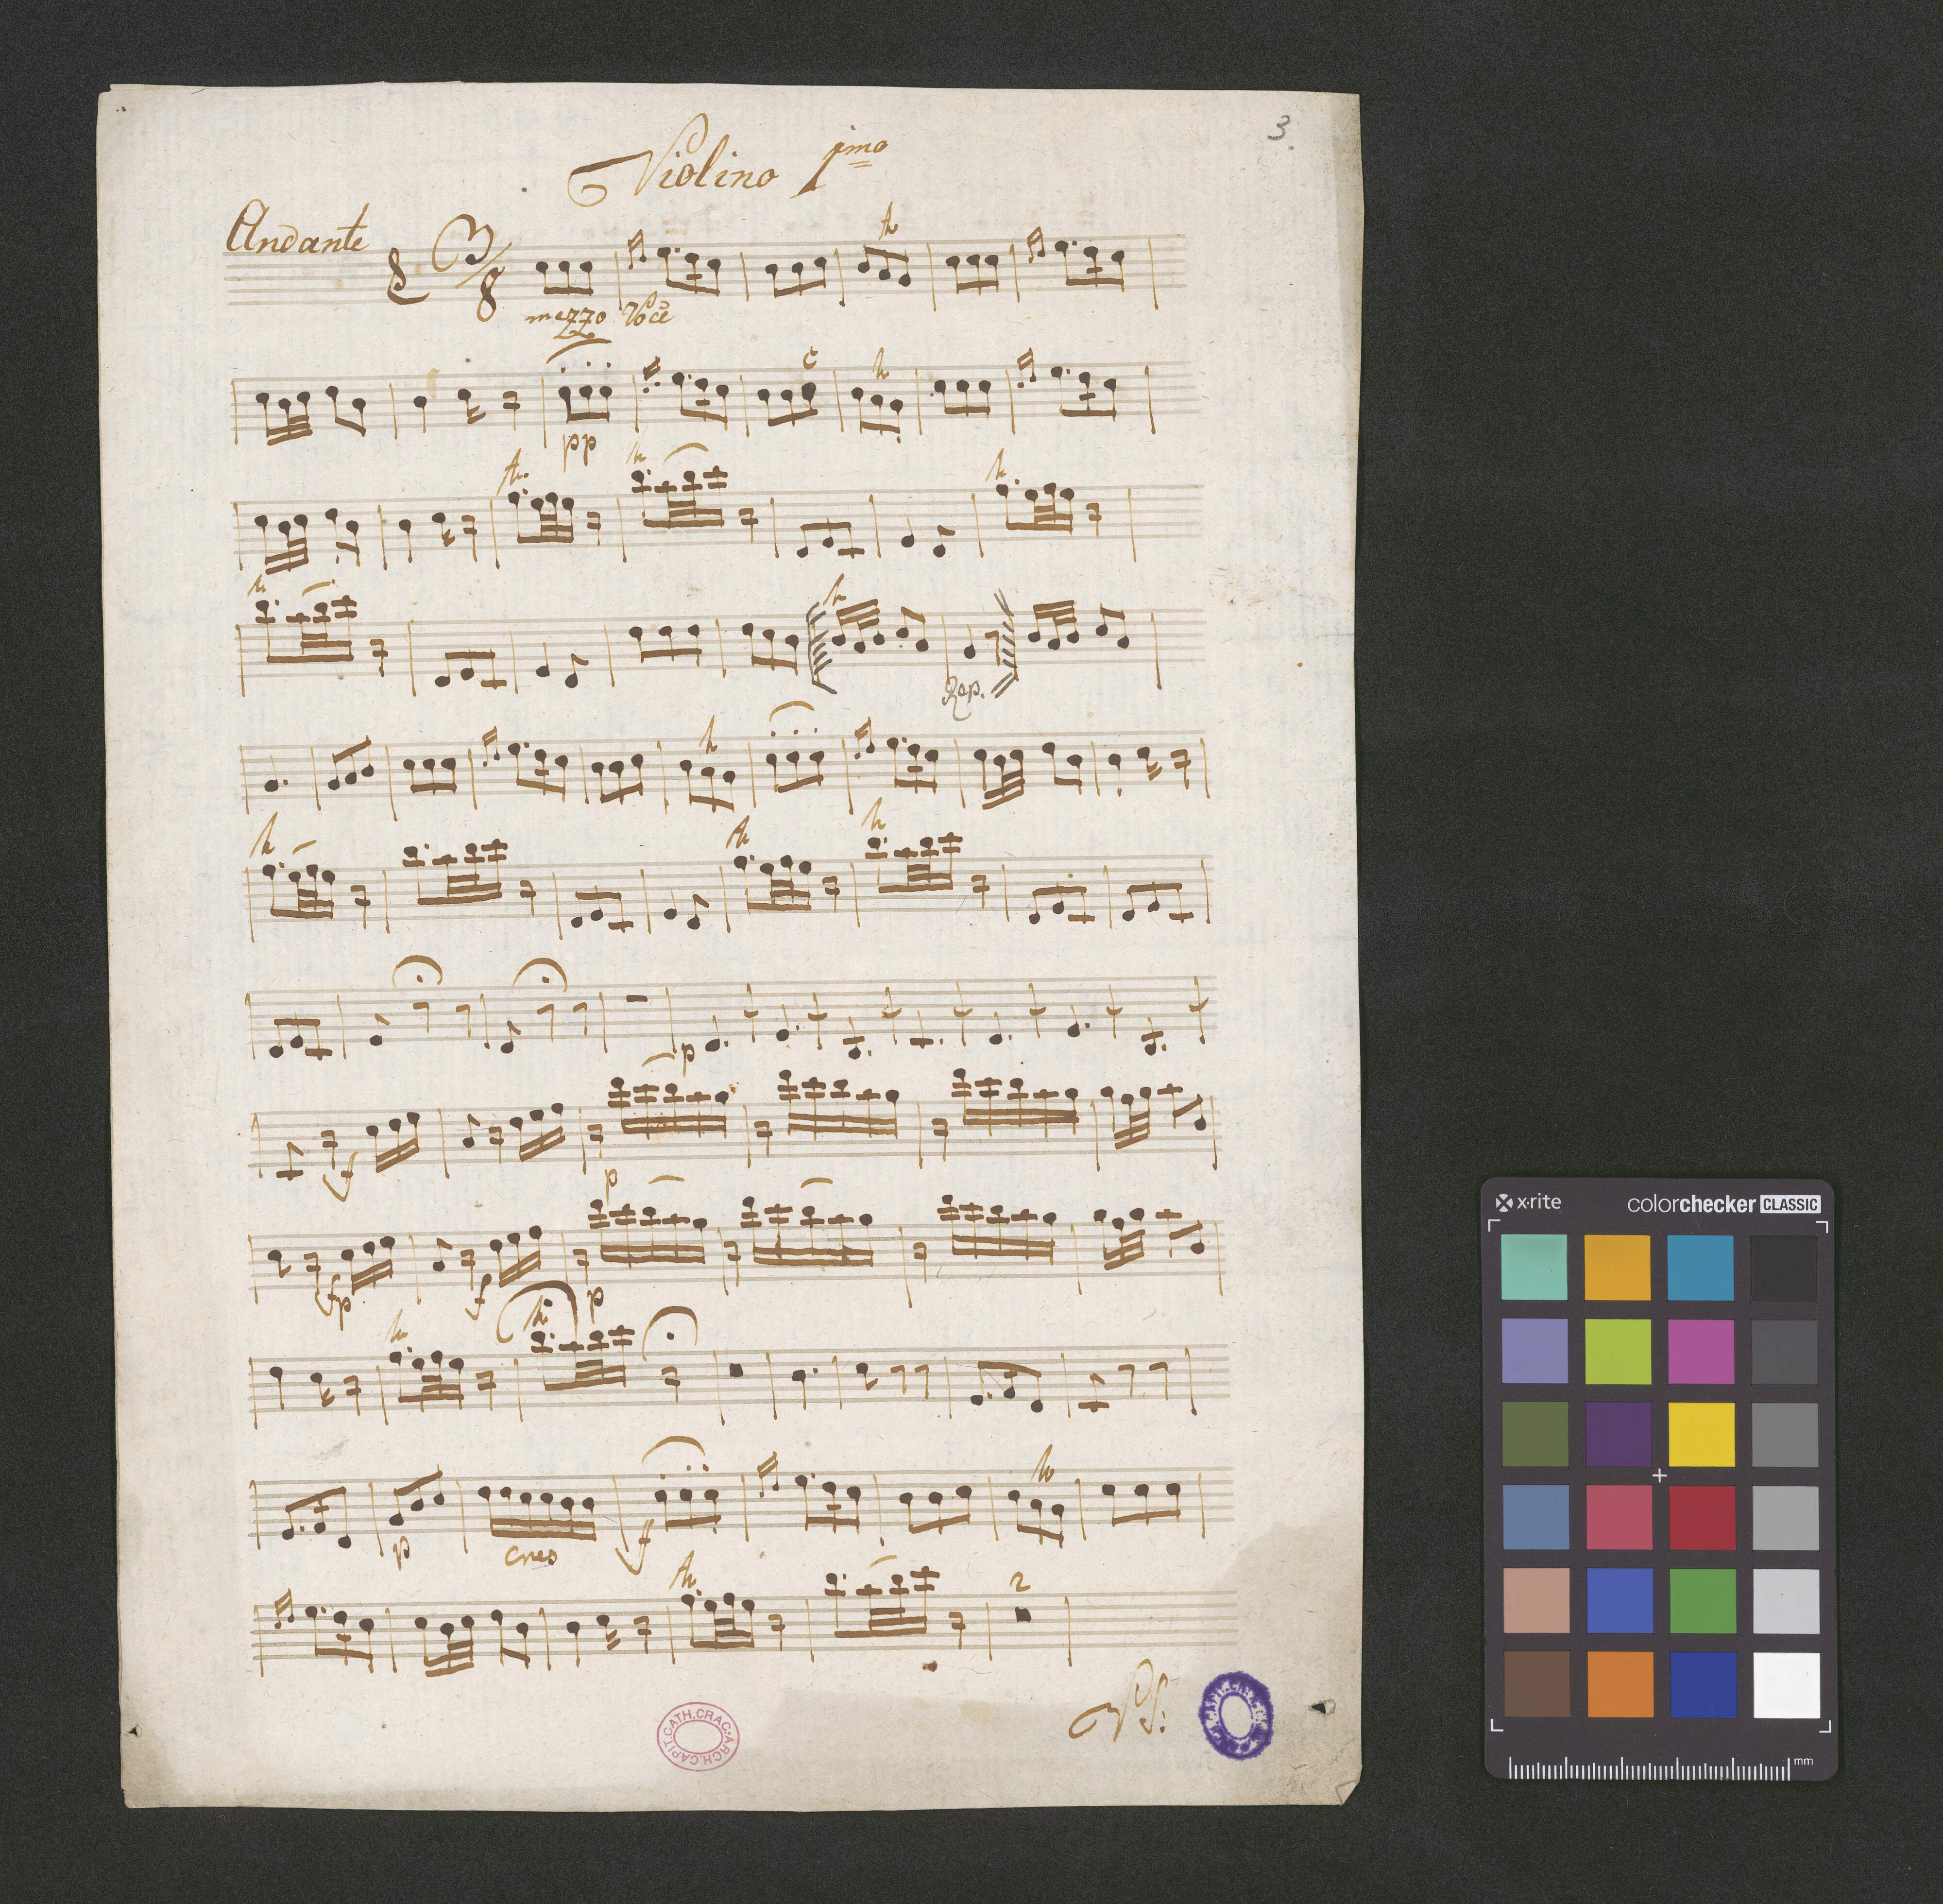 3.
Violino 1mo
Andante
3/8
mezzo Voce
pp
Rep.
p
f
p
fp
f
p
p
cres
f
2
VS:
CATH.CRAC. ARCH.CAPIT.
x·rite
colorchecker CLASSIC
mm